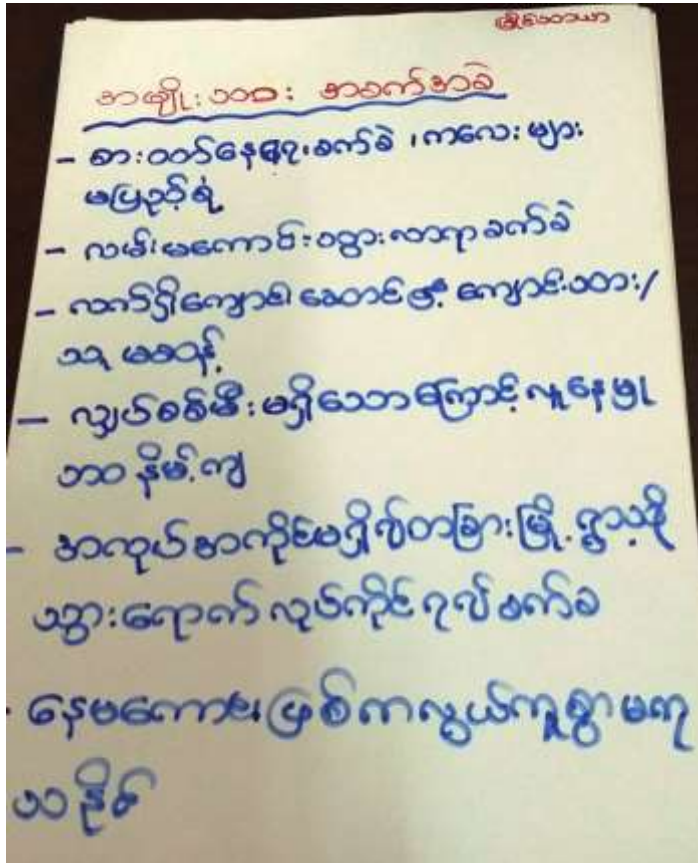 အမျိုးသား အခက်အခဲ
- စားဝတ်နေရေးခက်ခဲ ၊ ကလေးများ
မပြည့်စုံ
- လမ်းမကောင်း၊ သွားလာရာခက်ခဲ
- လက်ရှိကျောင်းဆောင်ဖြင့် ကျောင်းသား/
သူ မဆံ့
- လျှပ်စစ်မီး မရှိသောကြောင့် လူနေမှု
ဘဝ နိမ့်ကျ
- အလုပ်အကိုင်မရှိ၍ တခြားမြို့၊ ရွာသို့
သွားရောက် လုပ်ကိုင်ရ၍ ခက်ခဲ
- နေမကောင်းဖြစ်က လွယ်ကူစွာ မကု
သနိုင်